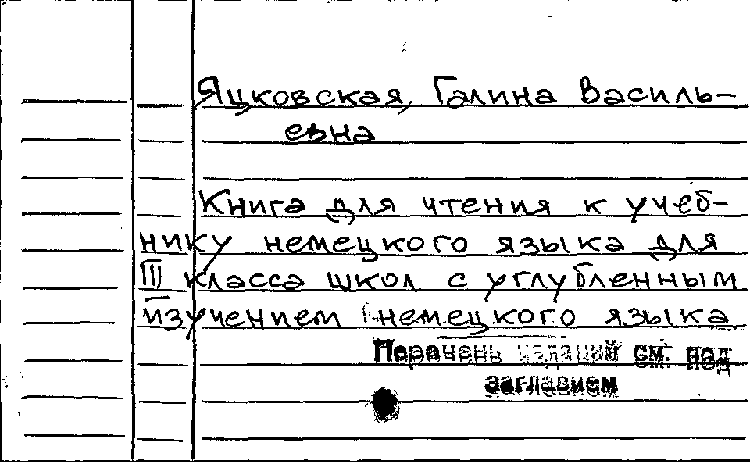 Яцковская, Галина Василь-
евна
Книга для чтения к учеб-
нику немецкого языка для
III класса школ с углубленным
изучением немецкого языка
Перечень изданий см. под
заглавием